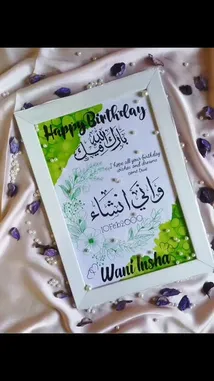 Happy Birthday
بارك الله فيك
I hope all your birthday
wishes and dreams
come true
وانی انشاء
Wani Insha